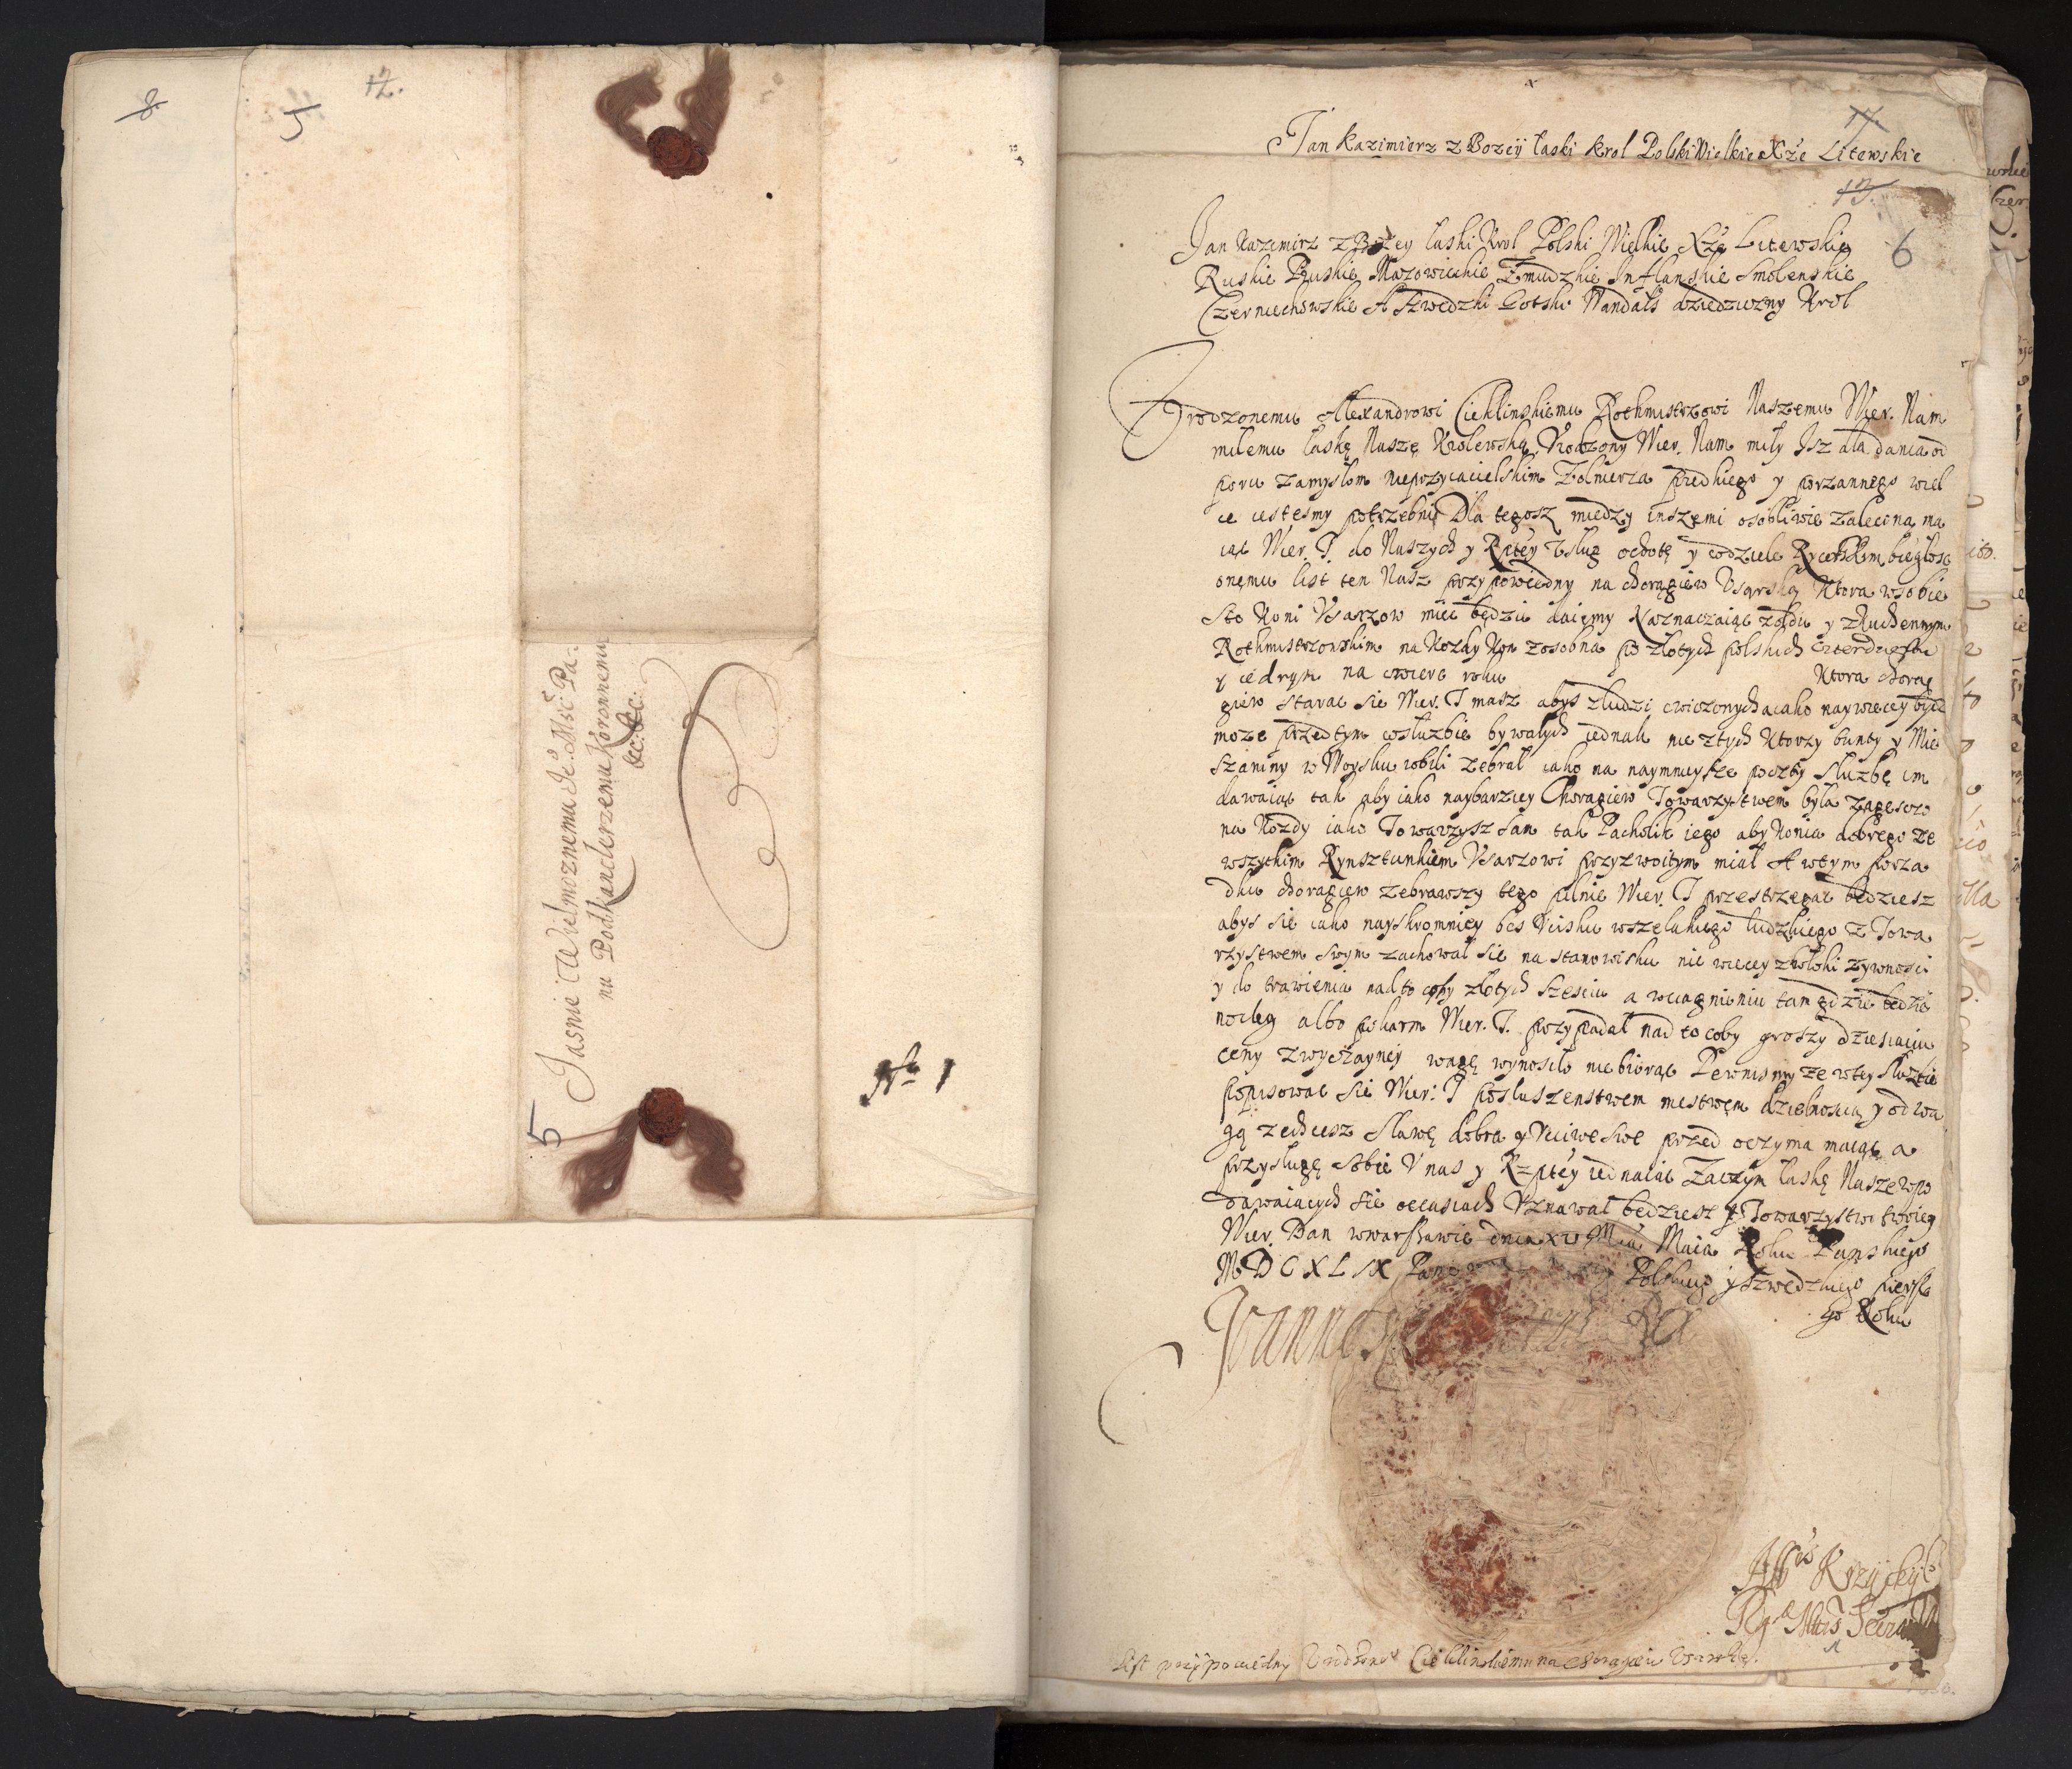 8.
5
12.
Jasnie Wielmoznemu Je° Msc Pa-
nu Podkanclerzemu Koronnemu
&c. &c.
5
N° 1
17.
Jan Kazimierz z Bozey łaski Krol Polski Wielkie Xże Litewskie
13.
6
Jan Kazimirz z Bożey łaski Krol Polski Wielkie Xże Litewskie
Ruskie Pruskie Mazowieckie Zmudzkie Inflanskie Smolenskie
Czerniechowskie A Szwedzki Gotski Wandals dziedziczny Krol
Vrodzonemu Alexandrowi Cieklinskiemu Rothmistrzowi Naszemu Wier. Nam
miłemu łaskę Naszę Krolewską Vrodzony Wier. Nam miły Isz dla dania od
poru zamysłom nieprzyiacielskim Zołnierza prędkiego y porzannego wiel
ce iestesmy potrzebni Dla tegosz miedzy inszemi osobliwie zaleconą ma
iąc Wier. T. do Naszych y Rptey vsług ochotę y wdziele Rycerskim biegłosc
onemu list ten Nasz przypowiedny na chorągiew Vsarską Ktora wsobie
Sto Koni Vsarzow miec będzie daiemy Naznaczaiąc zołdu y zKuchennym
Rothmistrzowskim na Kozdy Kon zosobna po złotych polskich czterdziestu
y iednym na cwierc roku Ktora chorą
giew starac sie Wier. T masz abys zludzi cwiczonych a iako naywiecey bydz
moze przedtym wsłuzbie bywałych iednak nie ztych Ktorzy bunty y Mie
szaniny w Woysku robili zebrał iako na naymnieysze poczty Słuzbę im
dawaiąc tak aby iako naybarziey Chorągiew Towarzystwem była zagęsczo
na Kozdy iako Towarzysz sam tak Pacholik iego aby Konia dobrego ze
wszytkim Rynsztunkiem Vsarzowi przyzwoitym miał A wtym porzą
dku chorągiew zebrawszy tego pilnie Wier. T przestrzegac będziesz
abys sie iako nayskromniey bes Vcisku wszelakiego ludzkiego z Towa
rzystwem swym zachował sie na stanowisku nie wiecey zwłoki zywnosci
y do trawienia nad to coby złotych szesciu a wciągnieniu tam gdzie będzie
nocleg albo pokarm Wier. T. przypadał nad to coby groszy dziesiąciu
ceny zwyczayney wagę wynosiło nie biorąc Pewnismy ze wtey słuzbie
popisowac sie Wier: T posłuszenstwem męstwem dzielnoscią y odwa
gą zechcesz Sławę dobrą y Vcciwe swe przed oczyma maiąc a
przysługę sobie V nas y Rzptey iednaiąc Zaczym łaskę Naszę wpo
dawaiących sie occasiach Vznawał będziesz y Towarzystwo twoie
Wier. Dan wwarszawie dnia XV Mca Maia Roku Panskiego
MDCXLIX Polskiego y Szwedzkiego pierwsze
go Roku
Joannes
Krzycki
Rgae Mttis Secretarius
List przypowiedny Vrodzonemu Cieklinskiemu na chorągiew Vsarską.